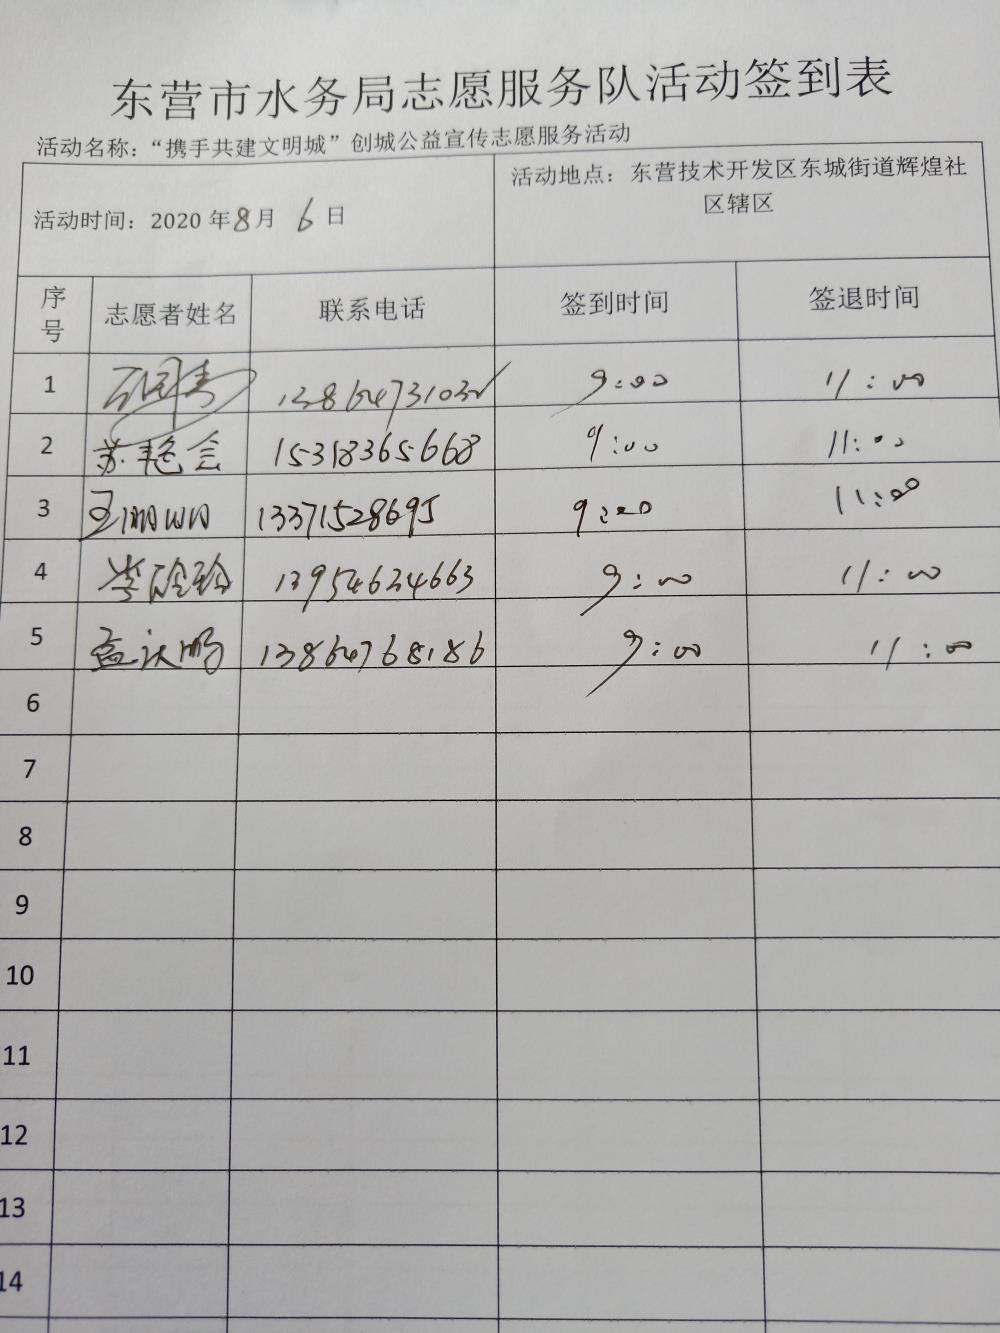 东营市水务局志愿服务队活动签到表
活动名称：“携手共建文明城”创城公益宣传志愿服务活动
活动时间：2020 年8月 6 日
活动地点：东营技术开发区东城街道辉煌社
区辖区
序号 志愿者姓名 联系电话 签到时间 签退时间
1 9:00 11:00
2 苏艳会 15318365668 9:00 11:00
3 王珊珊 13371528695 9:00 11:00
4 李玲玲 13954634663 9:00 11:00
5 13864768186 9:00 11:00
6
7
8
9
10
11
12
13
14